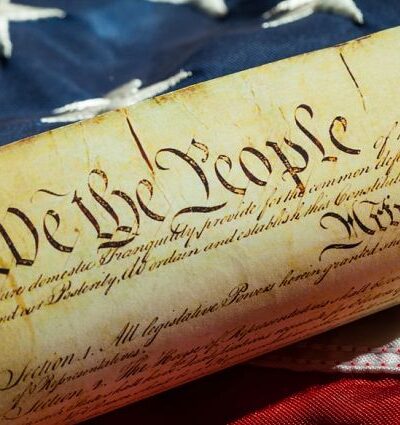 We the People of
ure domestic Tranquility, provide for the common defe
nd our Posterity, do ordain and establish this Constitut
Artic
Section. 1. All legislative Powers herein granted sha
of Representatives.
Section. 2. The House of Representatives shall be